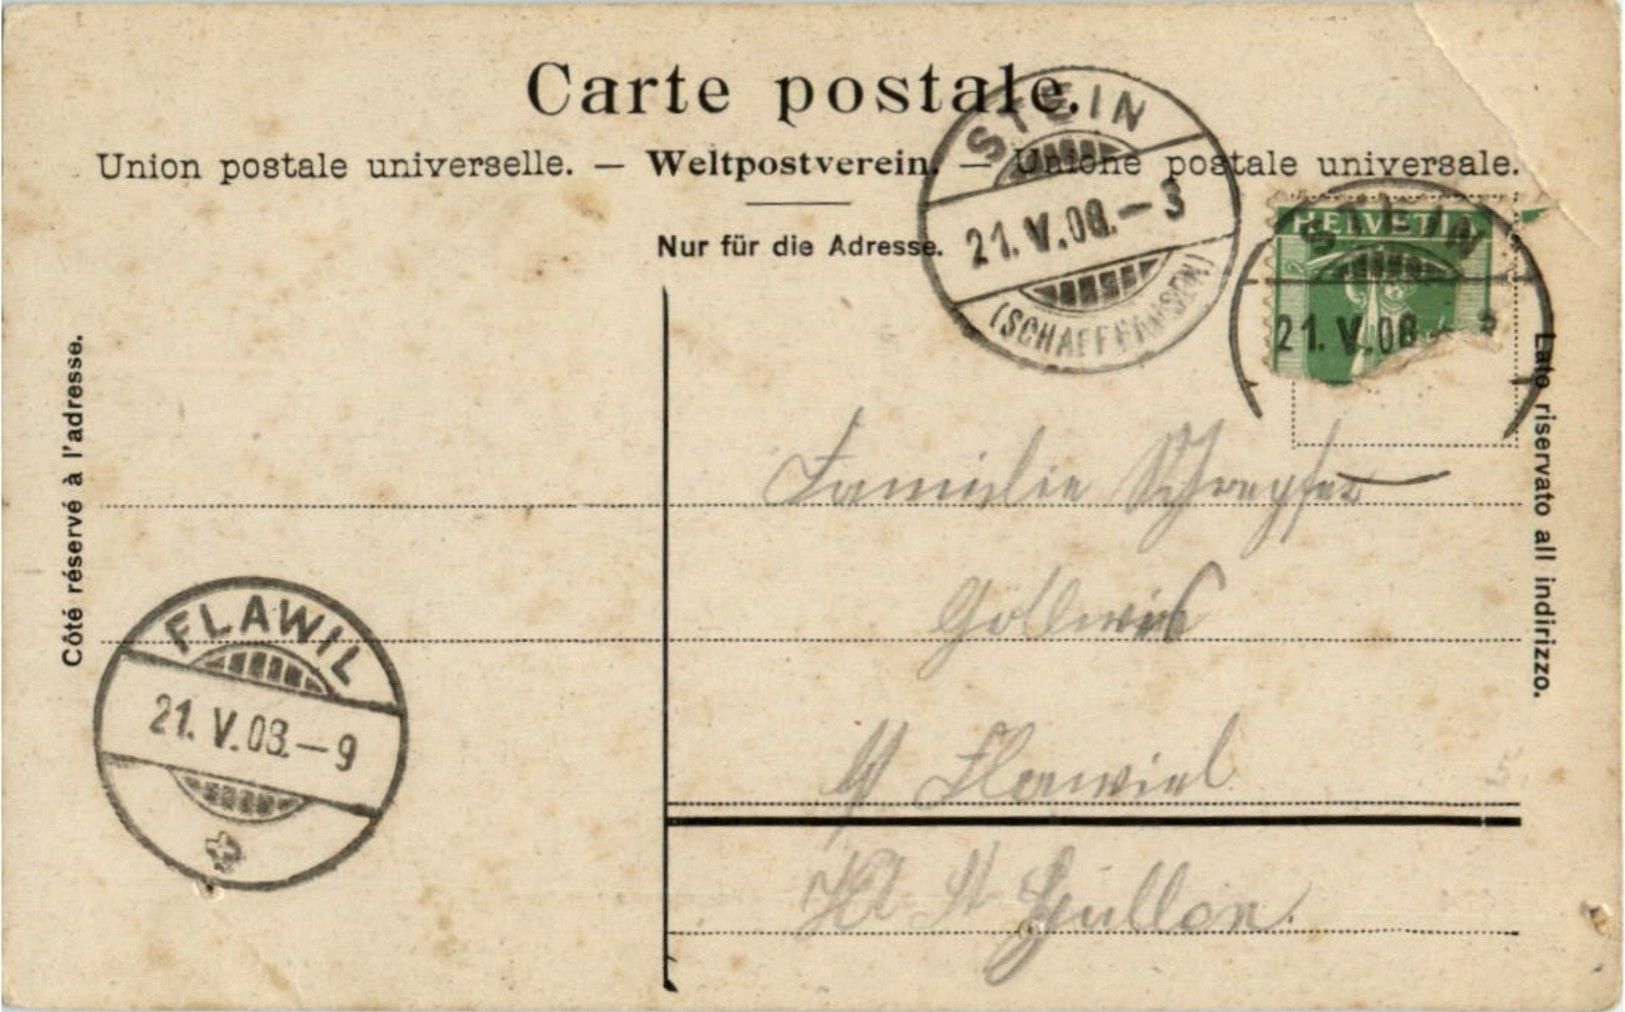 Carte postale.
Union postale universelle. — Weltpostverein. — Unione postale universale.
Nur für die Adresse.
STEIN
21. V. 08. – 3
(SCHAFFHAUSEN)
HELVETIA
STEIN
21. V. 08
Côté réservé à l'adresse.
Lato riservato all indirizzo.
Familie Schrepfer
Flawiel
Kt. St. Gallen.
FLAWIL
21. V. 08. – 9